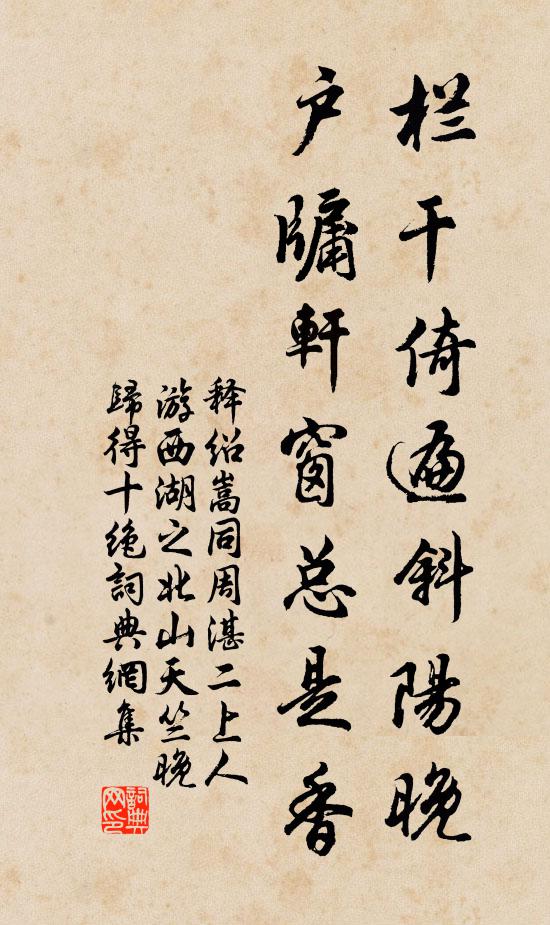 栏干倚遍斜陽晚
户牖軒窗总是香
释绍嵩同周湛二上人
游西湖之北山天竺晚
歸得十绝詞典網集
詞典网印